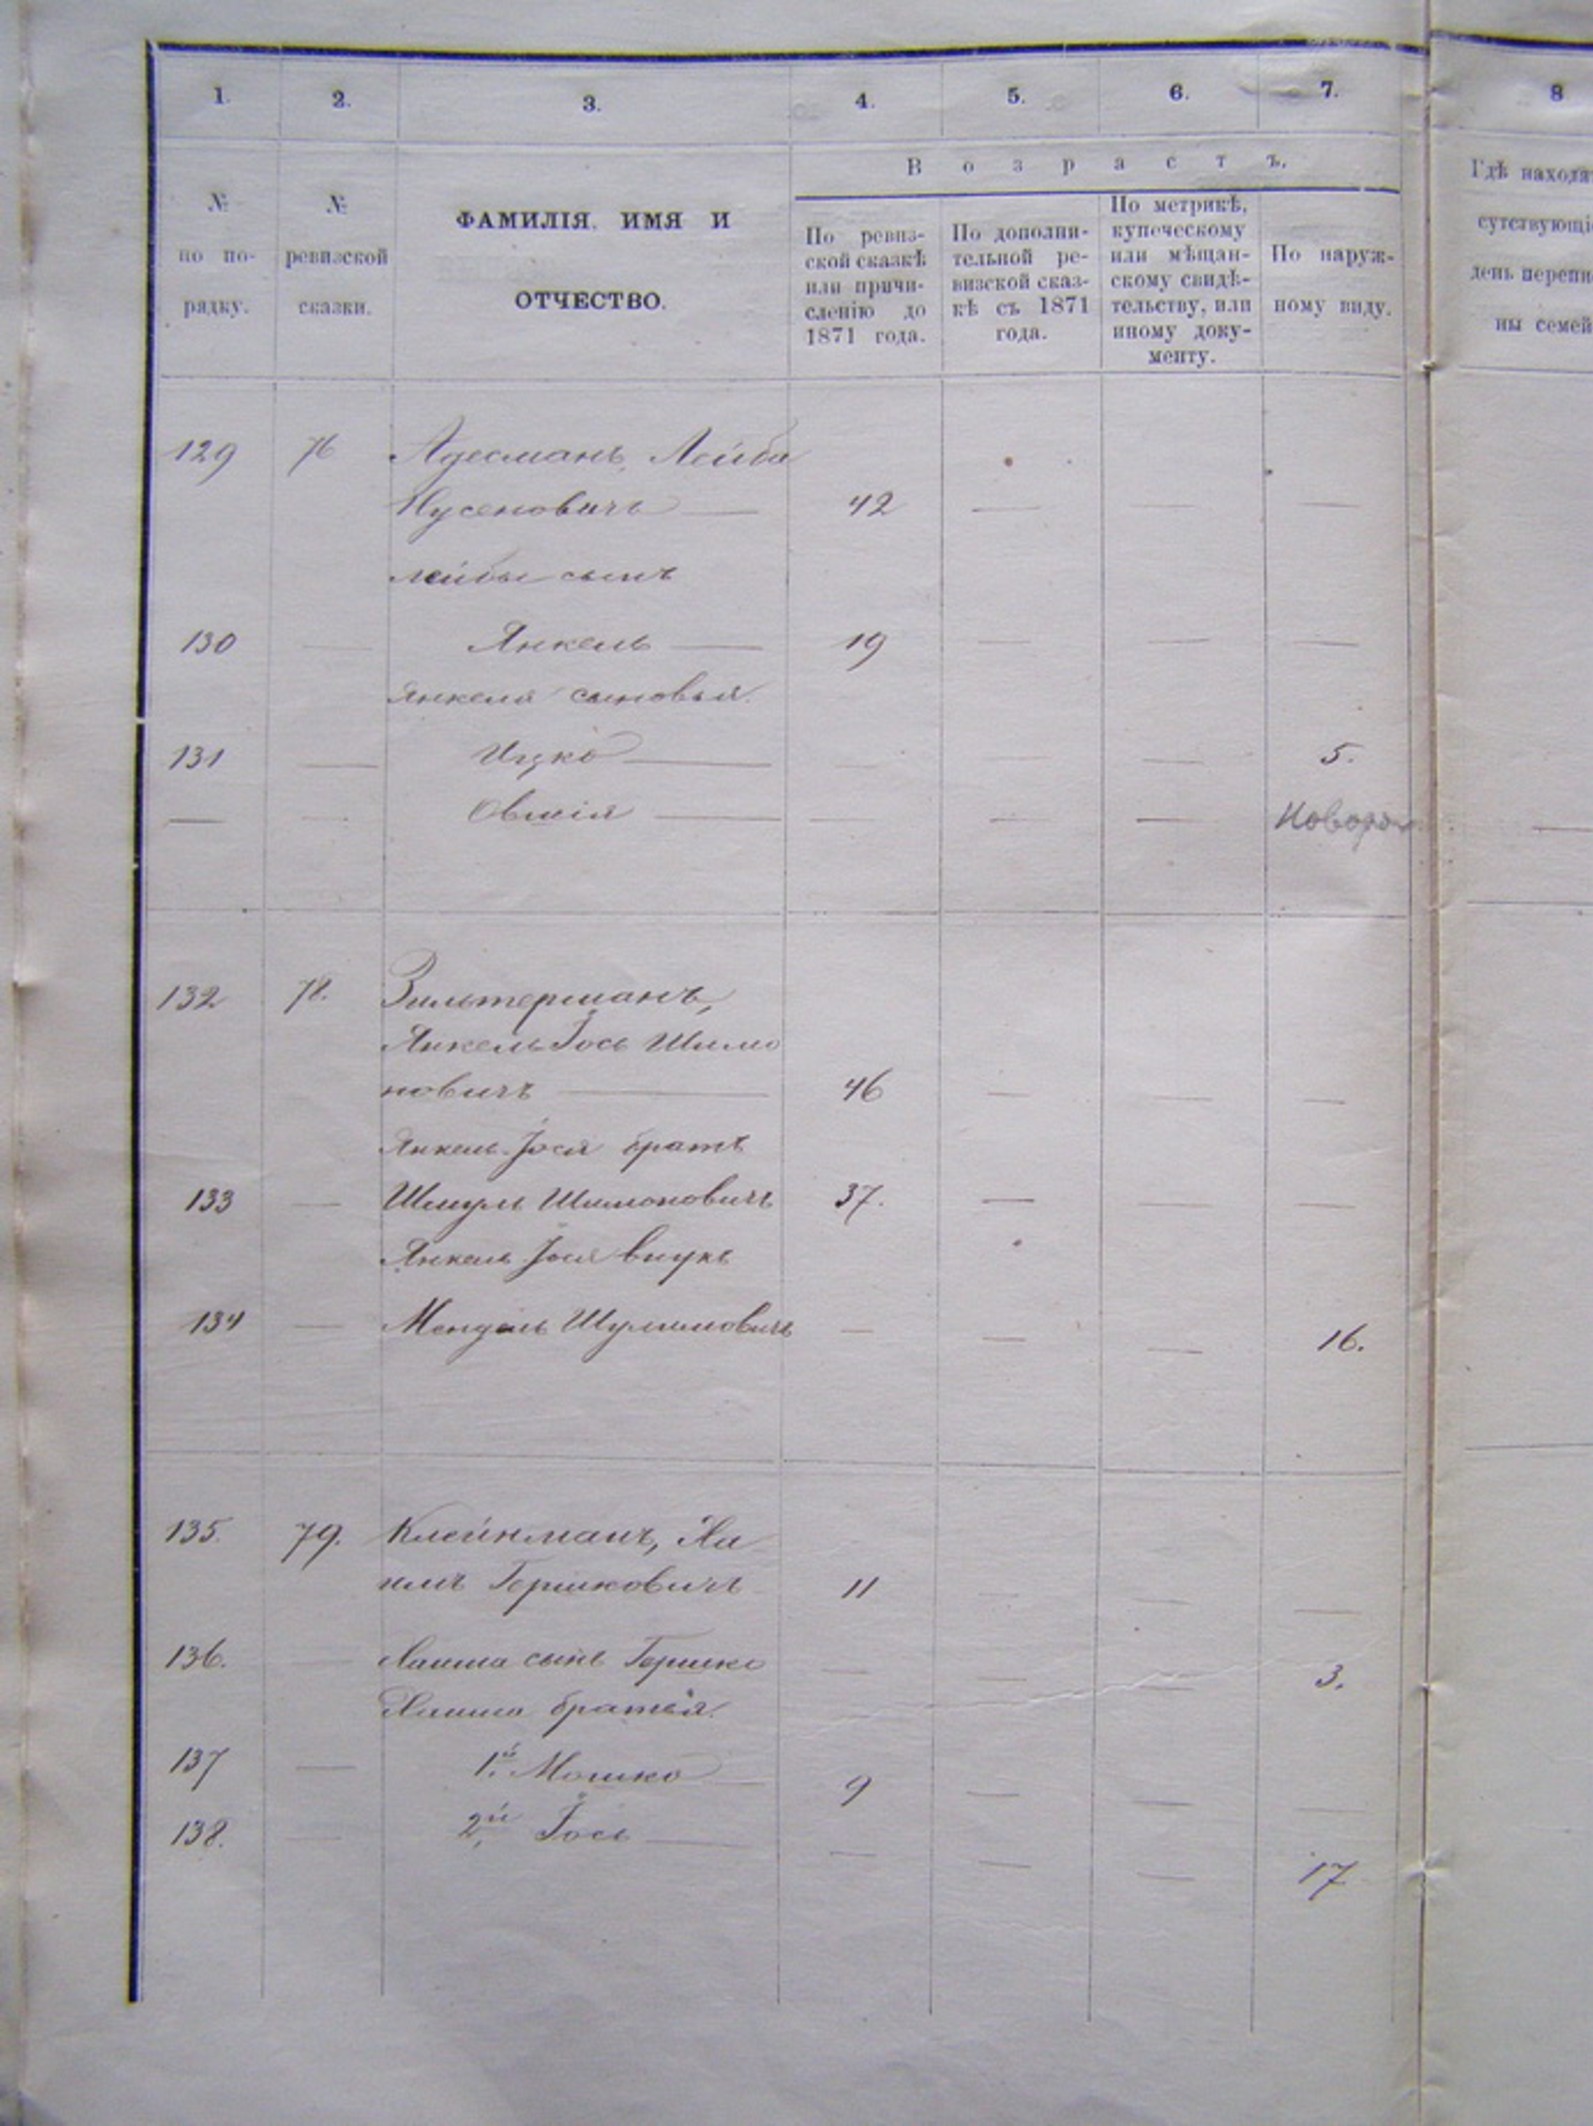 1. 2. 3. 4. 5. 6. 7. 8
Возрастъ.
№ по по-рядку.
№ ревизской сказки.
ФАМИЛІЯ. ИМЯ И
ОТЧЕСТВО.
По ревиз-
ской сказкѣ
или причи-
сленію до
1871 года.
По дополни-
тельной ре-
визской сказ-
кѣ съ 1871
года.
По метрикѣ,
купеческому
или мѣщан-
скому свидѣ-
тельству, или
иному доку-
менту.
По наруж-
ному виду.
Гдѣ находя
сутствующі
день перепи
ны семей
129 76 Адесманъ, Лейба
Нусеновичъ — 42 — — —
Лейбы сынъ
130 — Янкель — 19 — — —
Янкеля сыновья.
131 — Ицко — — — — 5.
— — Овшія — — — — Новорож
132 78. Зильтерманъ,
Янкель Іось Шимо
новичъ — 46 — — —
Янкель-Іося братъ
133 — Шмуль Шимоновичъ 37. — — —
Янкель Іося внукъ
134 — Мендель Шулимовичъ — — — 16.
135. 79. Клейнманъ, Ха
имъ Гершковичъ 11 — — —
136. — Хаима сынъ Гершко — — — 3.
Хаима братья.
137 — 1й Мошко — 9 — — —
138. — 2й Іось — — — — 17